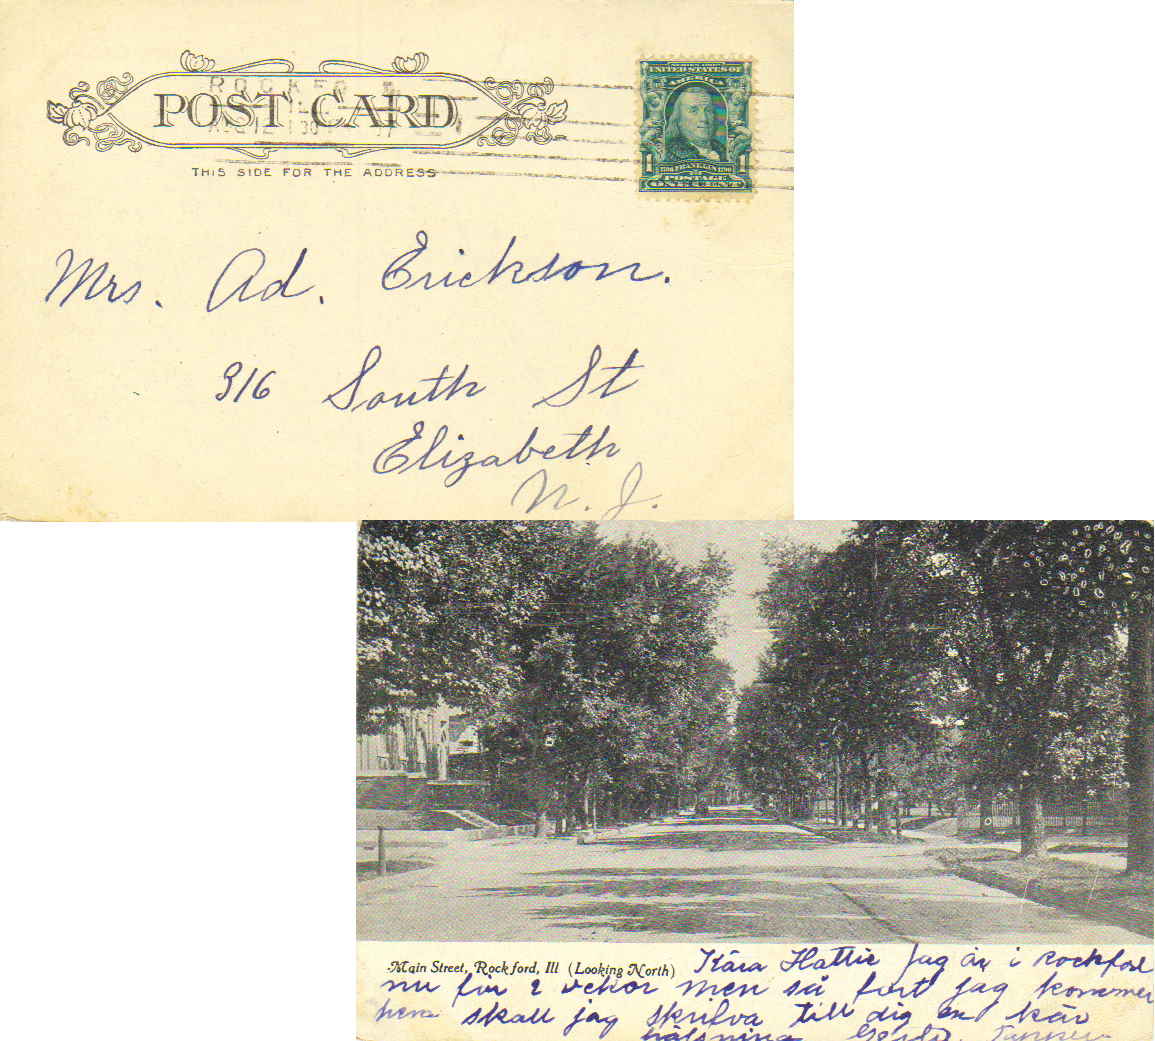 ROCKFO
POST CARD
AUG 12 1 30
THIS SIDE FOR THE ADDRESS
UNITED STATES OF
AMERICA
1 FRANKLIN 1
POSTAGE
ONE CENT
Mrs. Ad. Erickson.
316 South St
Elizabeth
N. J.
Main Street, Rockford, Ill (Looking North)
Kära Hattie Jag är i Rockford
nu för 2 veckor men så fort jag kommer
hem skall jag skrifva till dig en kär
hälsning Gerda